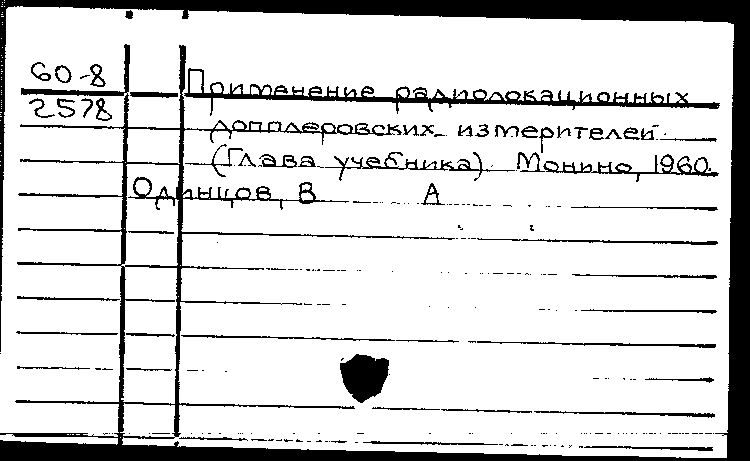 60-8 Применение радиолокационных
2578 допплеровских измерителей.
(Глава учебника). Монино, 1960.
Одинцов, В А